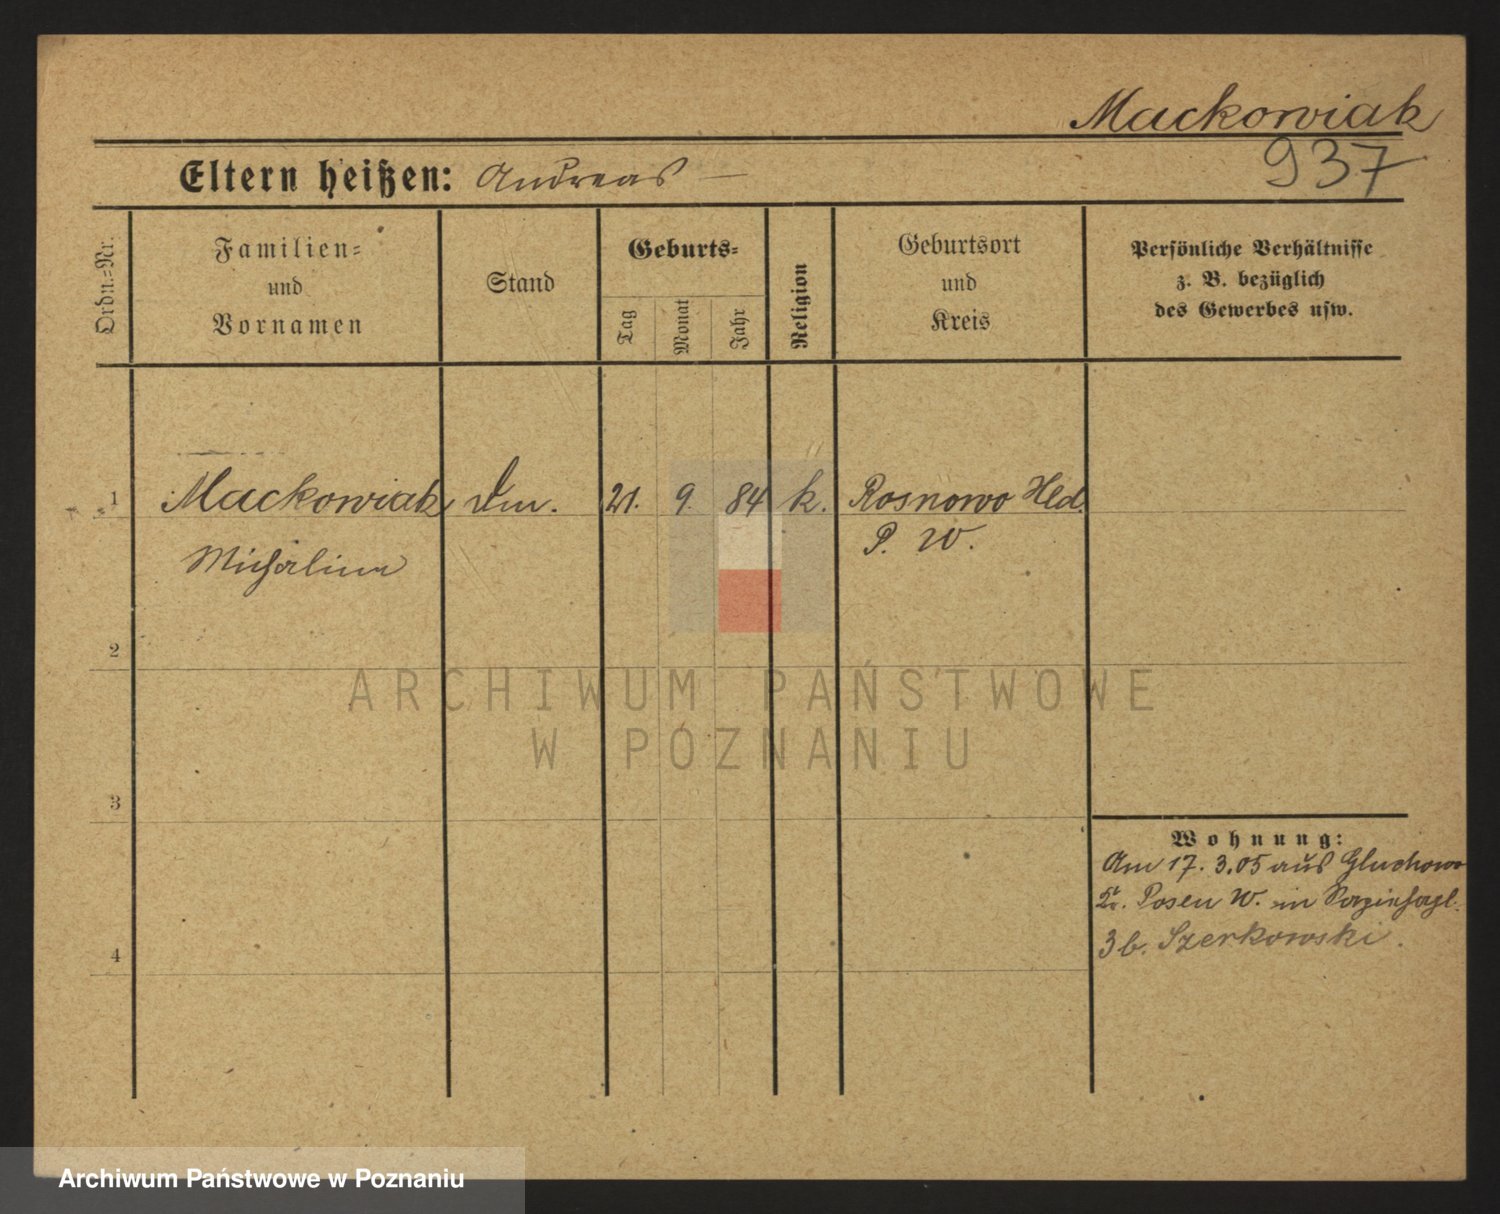 Mackowiak
937
Eltern heißen: Andreas —
Ordn.-Nr.
Familien-
und
Vornamen
Stand
Geburts-
Tag
Monat
Jahr
Religion
Geburtsort
und
Kreis
Persönliche Verhältnisse
z. B. bezüglich
des Gewerbes usw.
1 Mackowiak 21. 9. 84 k. Rosnowo Hld.
Michalina P. W.
2
3
4
Wohnung:
Am 17. 3. 05 aus Gluchowo
Kr. Posen W. in
3 b. Szerkowski.
ARCHIWUM PAŃSTWOWE
W POZNANIU
Archiwum Państwowe w Poznaniu